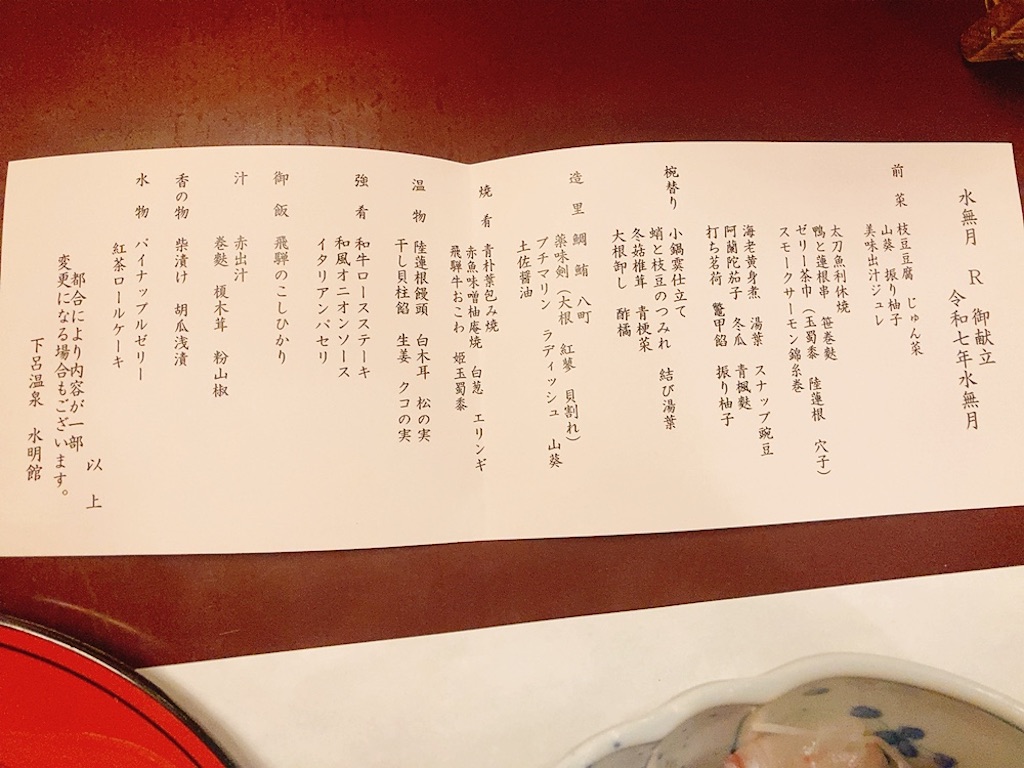 水無月 R 御献立
令和七年水無月
前菜 枝豆豆腐 じゅん菜
山葵 振り柚子
美味出汁ジュレ
太刀魚利休焼
鴨と蓮根串 笹巻麩
ゼリー茶巾(玉蜀黍 陸蓮根 穴子)
スモークサーモン錦糸巻
海老黄身煮 湯葉 スナップ豌豆
阿蘭陀茄子 冬瓜 青楓麩
打ち茗荷 鼈甲餡 振り柚子
椀替り 小鍋霙仕立て
蛸と枝豆のつみれ 結び湯葉
冬菇椎茸 青梗菜
大根卸し 酢橘
造里 鯛 鮪 八町
薬味剣(大根 紅蓼 貝割れ)
プチマリン ラディッシュ 山葵
土佐醤油
焼肴 青朴葉包み焼
赤魚味噌柚庵焼 白葱 エリンギ
飛騨牛おこわ 姫玉蜀黍
温物 陸蓮根饅頭 白木耳 松の実
干し貝柱餡 生姜 クコの実
強肴 和牛ロースステーキ
和風オニオンソース
イタリアンパセリ
御飯 飛騨のこしひかり
汁 赤出汁
巻麩 榎木茸 粉山椒
香の物 柴漬け 胡瓜浅漬
水物 パイナップルゼリー
紅茶ロールケーキ
以上
都合により内容が一部
変更になる場合もございます。
下呂温泉 水明館